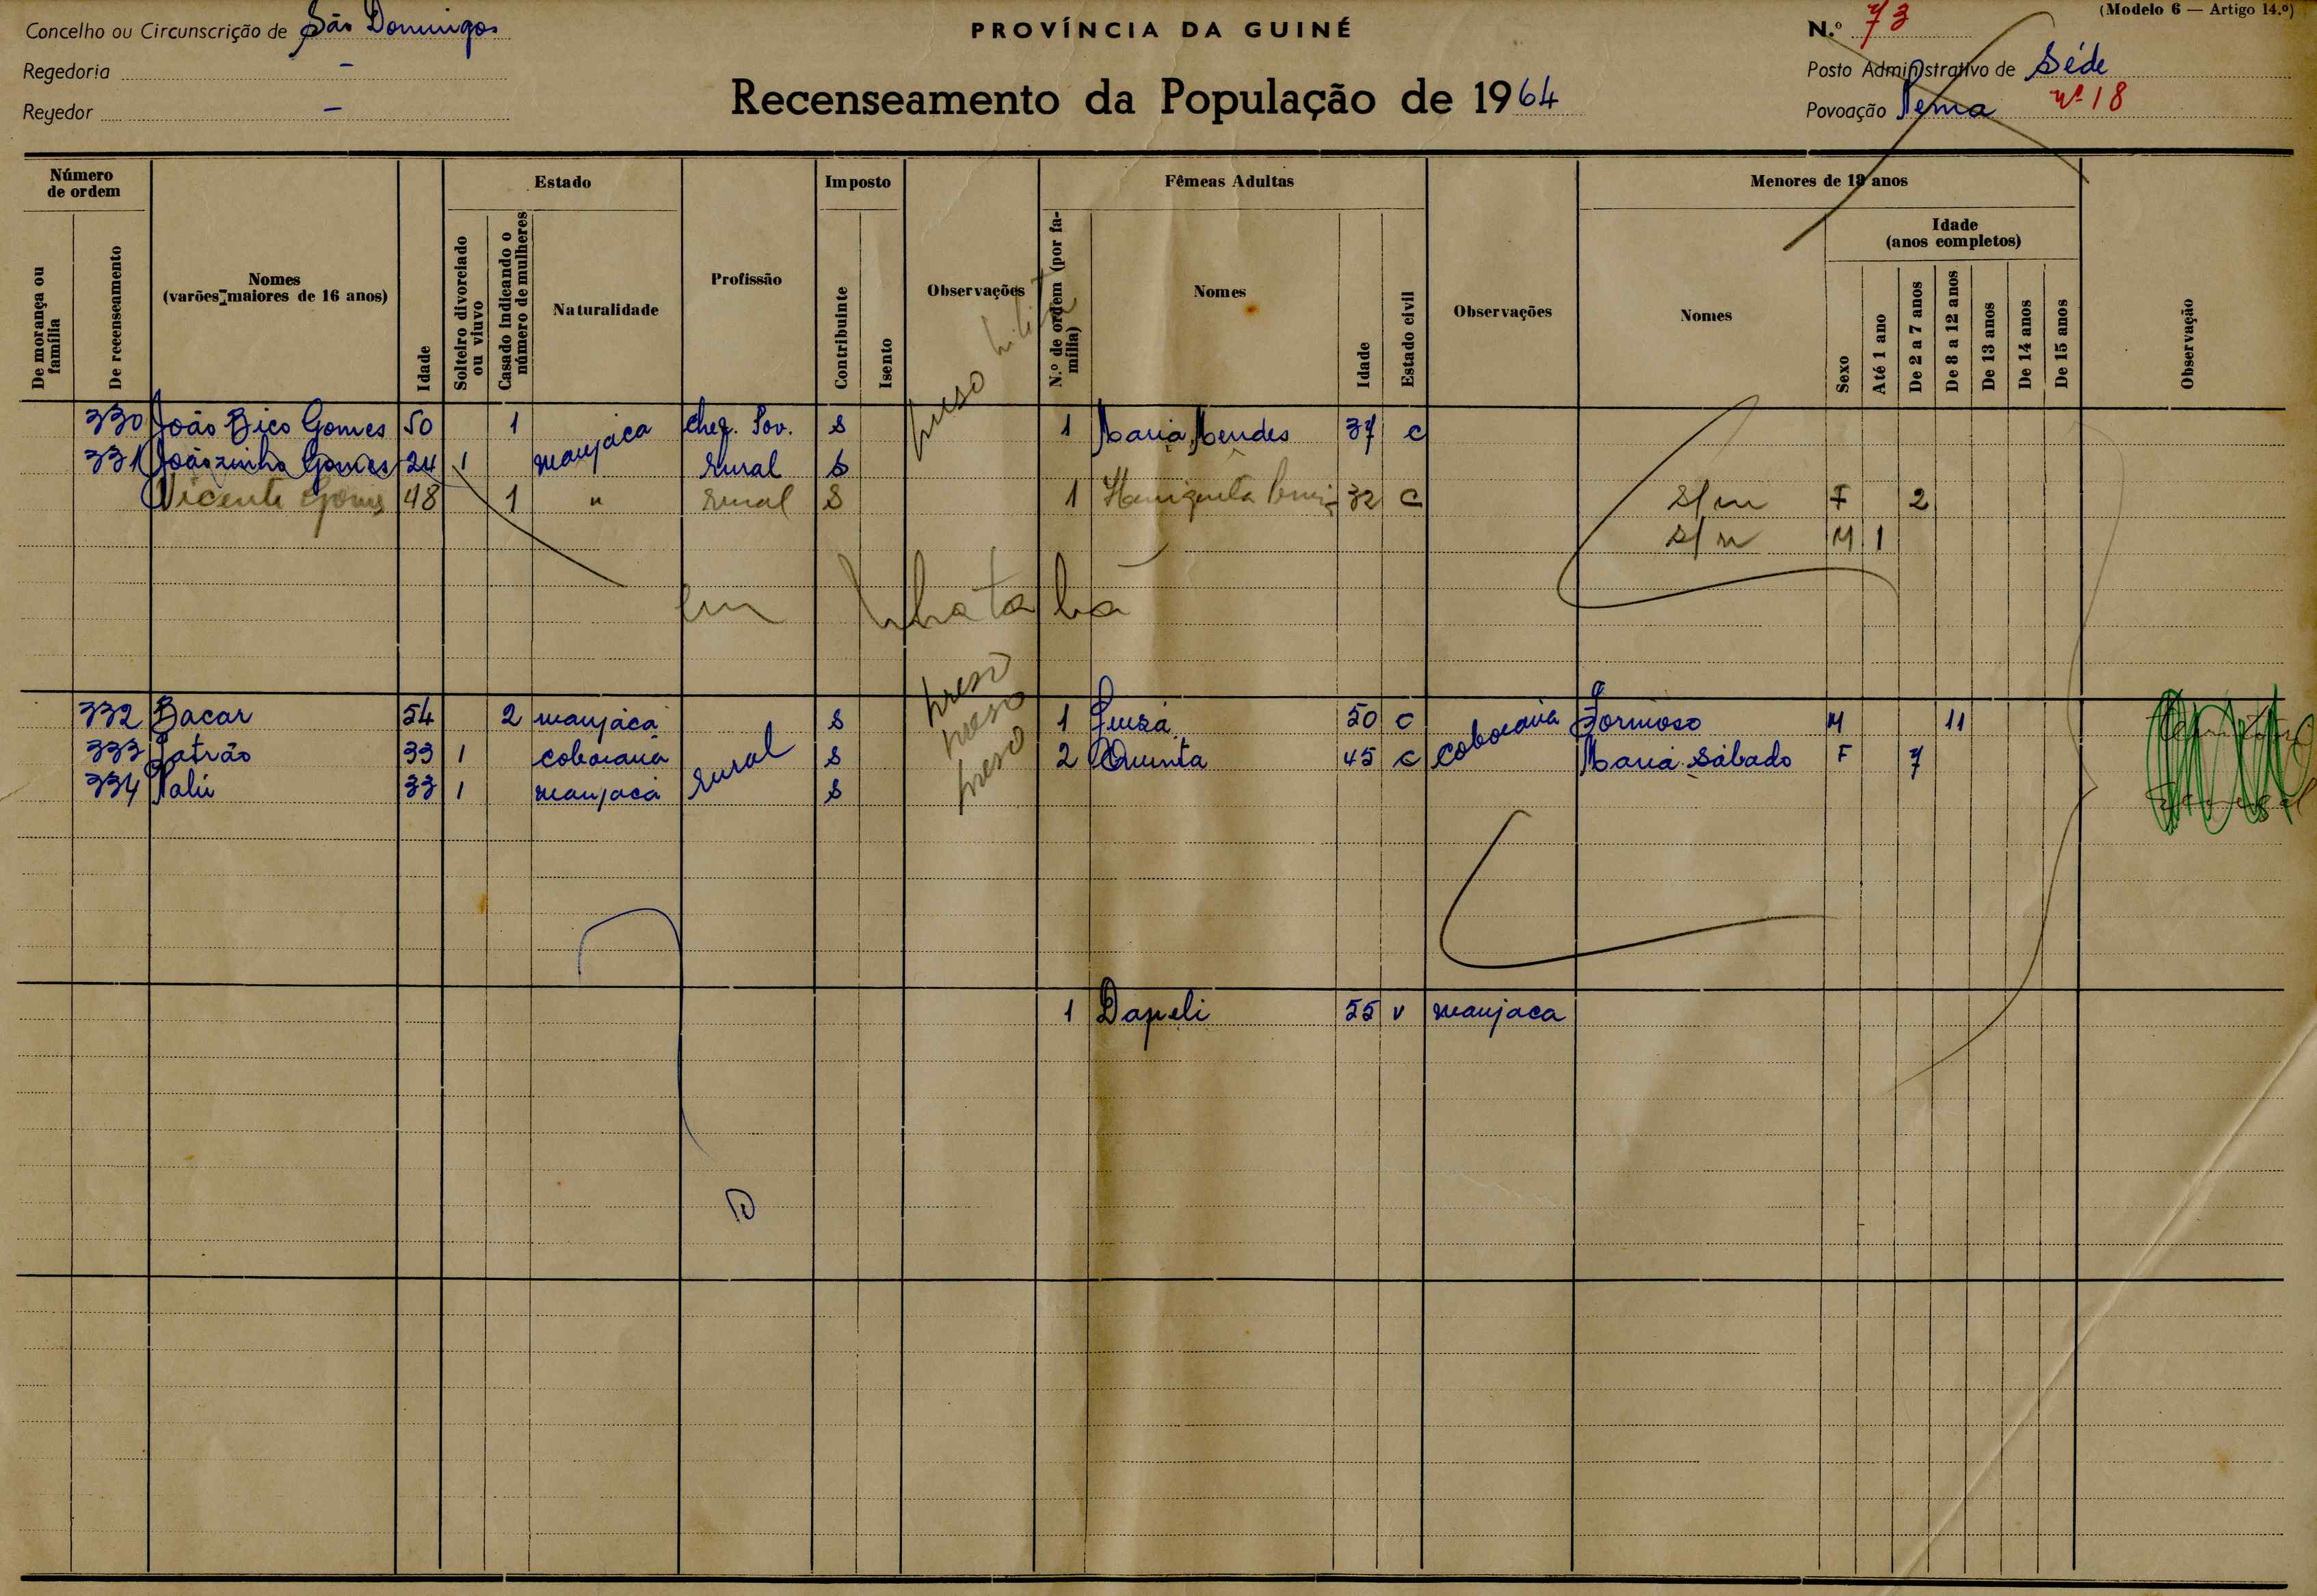 (Modelo 6 — Artigo 14.º)
Concelho ou Circunscrição de São Domingos
PROVÍNCIA DA GUINÉ
N.º 73
Regedoria –
Posto Administrativo de Séde
Regedor –
Recenseamento da População de 1964
Povoação Pema nº 18
Número de ordem
Estado
Imposto
Fêmeas Adultas
Menores de 18 anos
Idade (anos completos)
De morança ou família
De recenseamento
Nomes (varões maiores de 16 anos)
Idade
Solteiro divorciado ou viuvo
Casado indicando o número de mulheres
Naturalidade
Profissão
Contribuinte
Isento
Observações
N.º de ordem (por família)
Nomes
Idade
Estado civil
Observações
Nomes
Sexo
Até 1 ano
De 2 a 7 anos
De 8 a 12 anos
De 13 anos
De 14 anos
De 15 anos
Observação
330 João Bico Gomes 50 1 manjaca Chef. Pov. S preso 1 Maria Mendes 37 c
331 Joãozinho Gomes 24 1 rural S
Vicente Gomes 48 1 " rural S 1 32 C s/n F 2
s/n M 1
em
332 Bacar 54 2 manjaca rural S preso 1 Luiza 50 c coboiana Formoso M 11
333 Patrão 33 1 coboiana S preso 2 Quinta 45 c Maria Sábado F 7
334 Palú 33 1 manjaca S preso
1 Dapeli 55 v manjaca